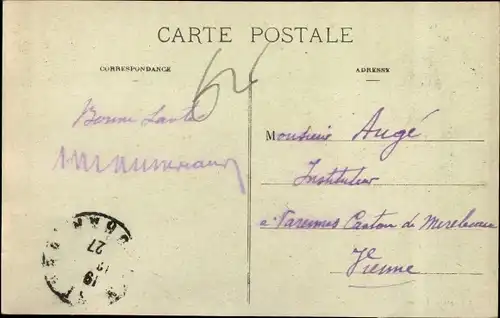 CARTE POSTALE
CORRESPONDANCE
ADRESSE
64
Bonne Santé
Monsieur Augé
Instituteur
à Varennes Canton de Mirebeau
Vienne
27
19